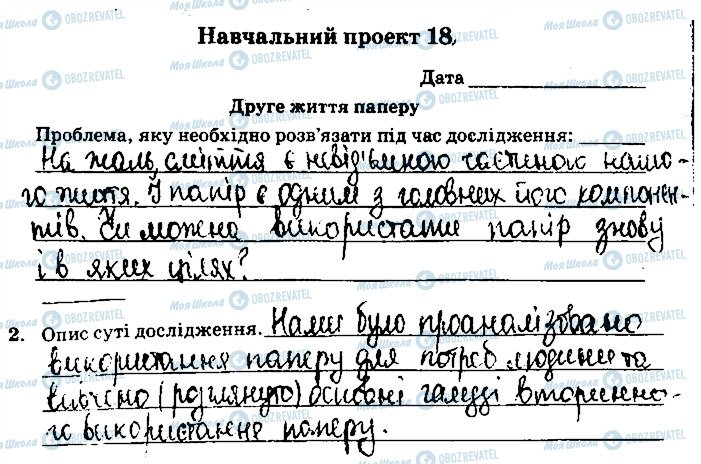 Навчальний проект 18.
Дата
Друге життя паперу
Проблема, яку необхідно розв'язати під час дослідження:
На жаль, сміття є невід'ємною частиною нашо-
го життя. І папір є одним з головних його компонен-
тів. Чи можна використати папір знову
і в яких цілях?
2. Опис суті дослідження. Нами було проаналізовано
використання паперу для потреб людини та
вивчено (розглянуто) основні галузі вторинно-
го використання паперу.